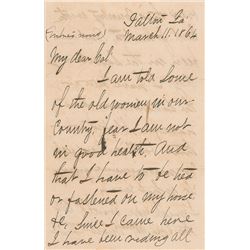 Dalton Ga
March 11. 1864
My dear Col.
I am told some
of the old women in our
County, fear I am not
in good health. And
that I have to be tied
or fastened on my horse
&c, Since I came here
I have been riding all